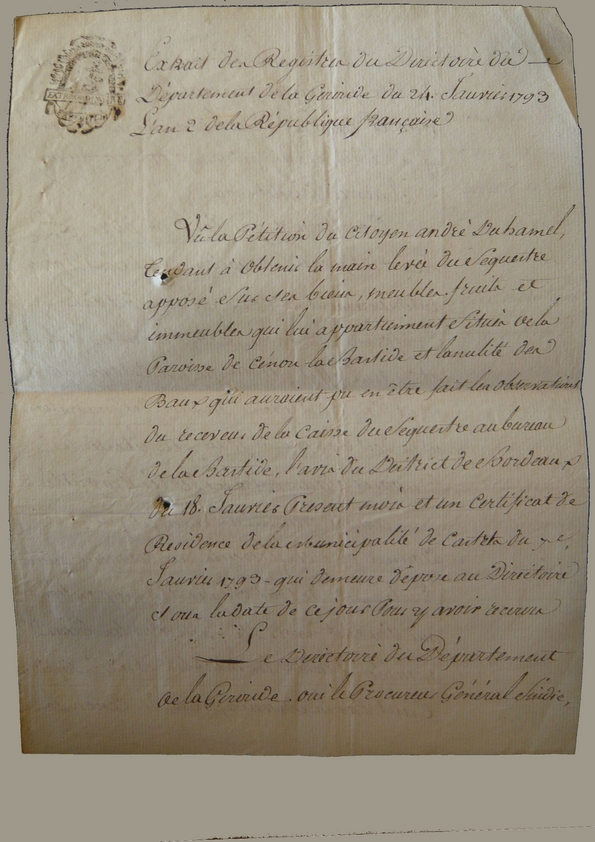 Extrait des Registres du Directoire du
Département de la Gironde du 24. Janvier 1793
L'an 2 de la République française
Vû la Pétition du Citoyen andré Duhamel,
tendant à obtenir la main levée du Sequestre
apposé sur ses biens, meubles fruits et
immeubles qui lui appartiennent Situés de la
Paroisse de Cénon-la Bastide et la nulité des
Baux qui auraient pu en être fait les observations
du receveur de la Caisse du Sequestre au bureau
de la Bastide, l'avis du District de Bordeaux
du 18. Janvier Present mois et un certificat de
Residence de la Municipalité de du 7e.
Janvier 1793 - qui demeure déposé au Directoire
sous la date de ce jour Pour y avoir recours
Le Directoire du Département
de la Gironde oui le Procureur Général Sindic,